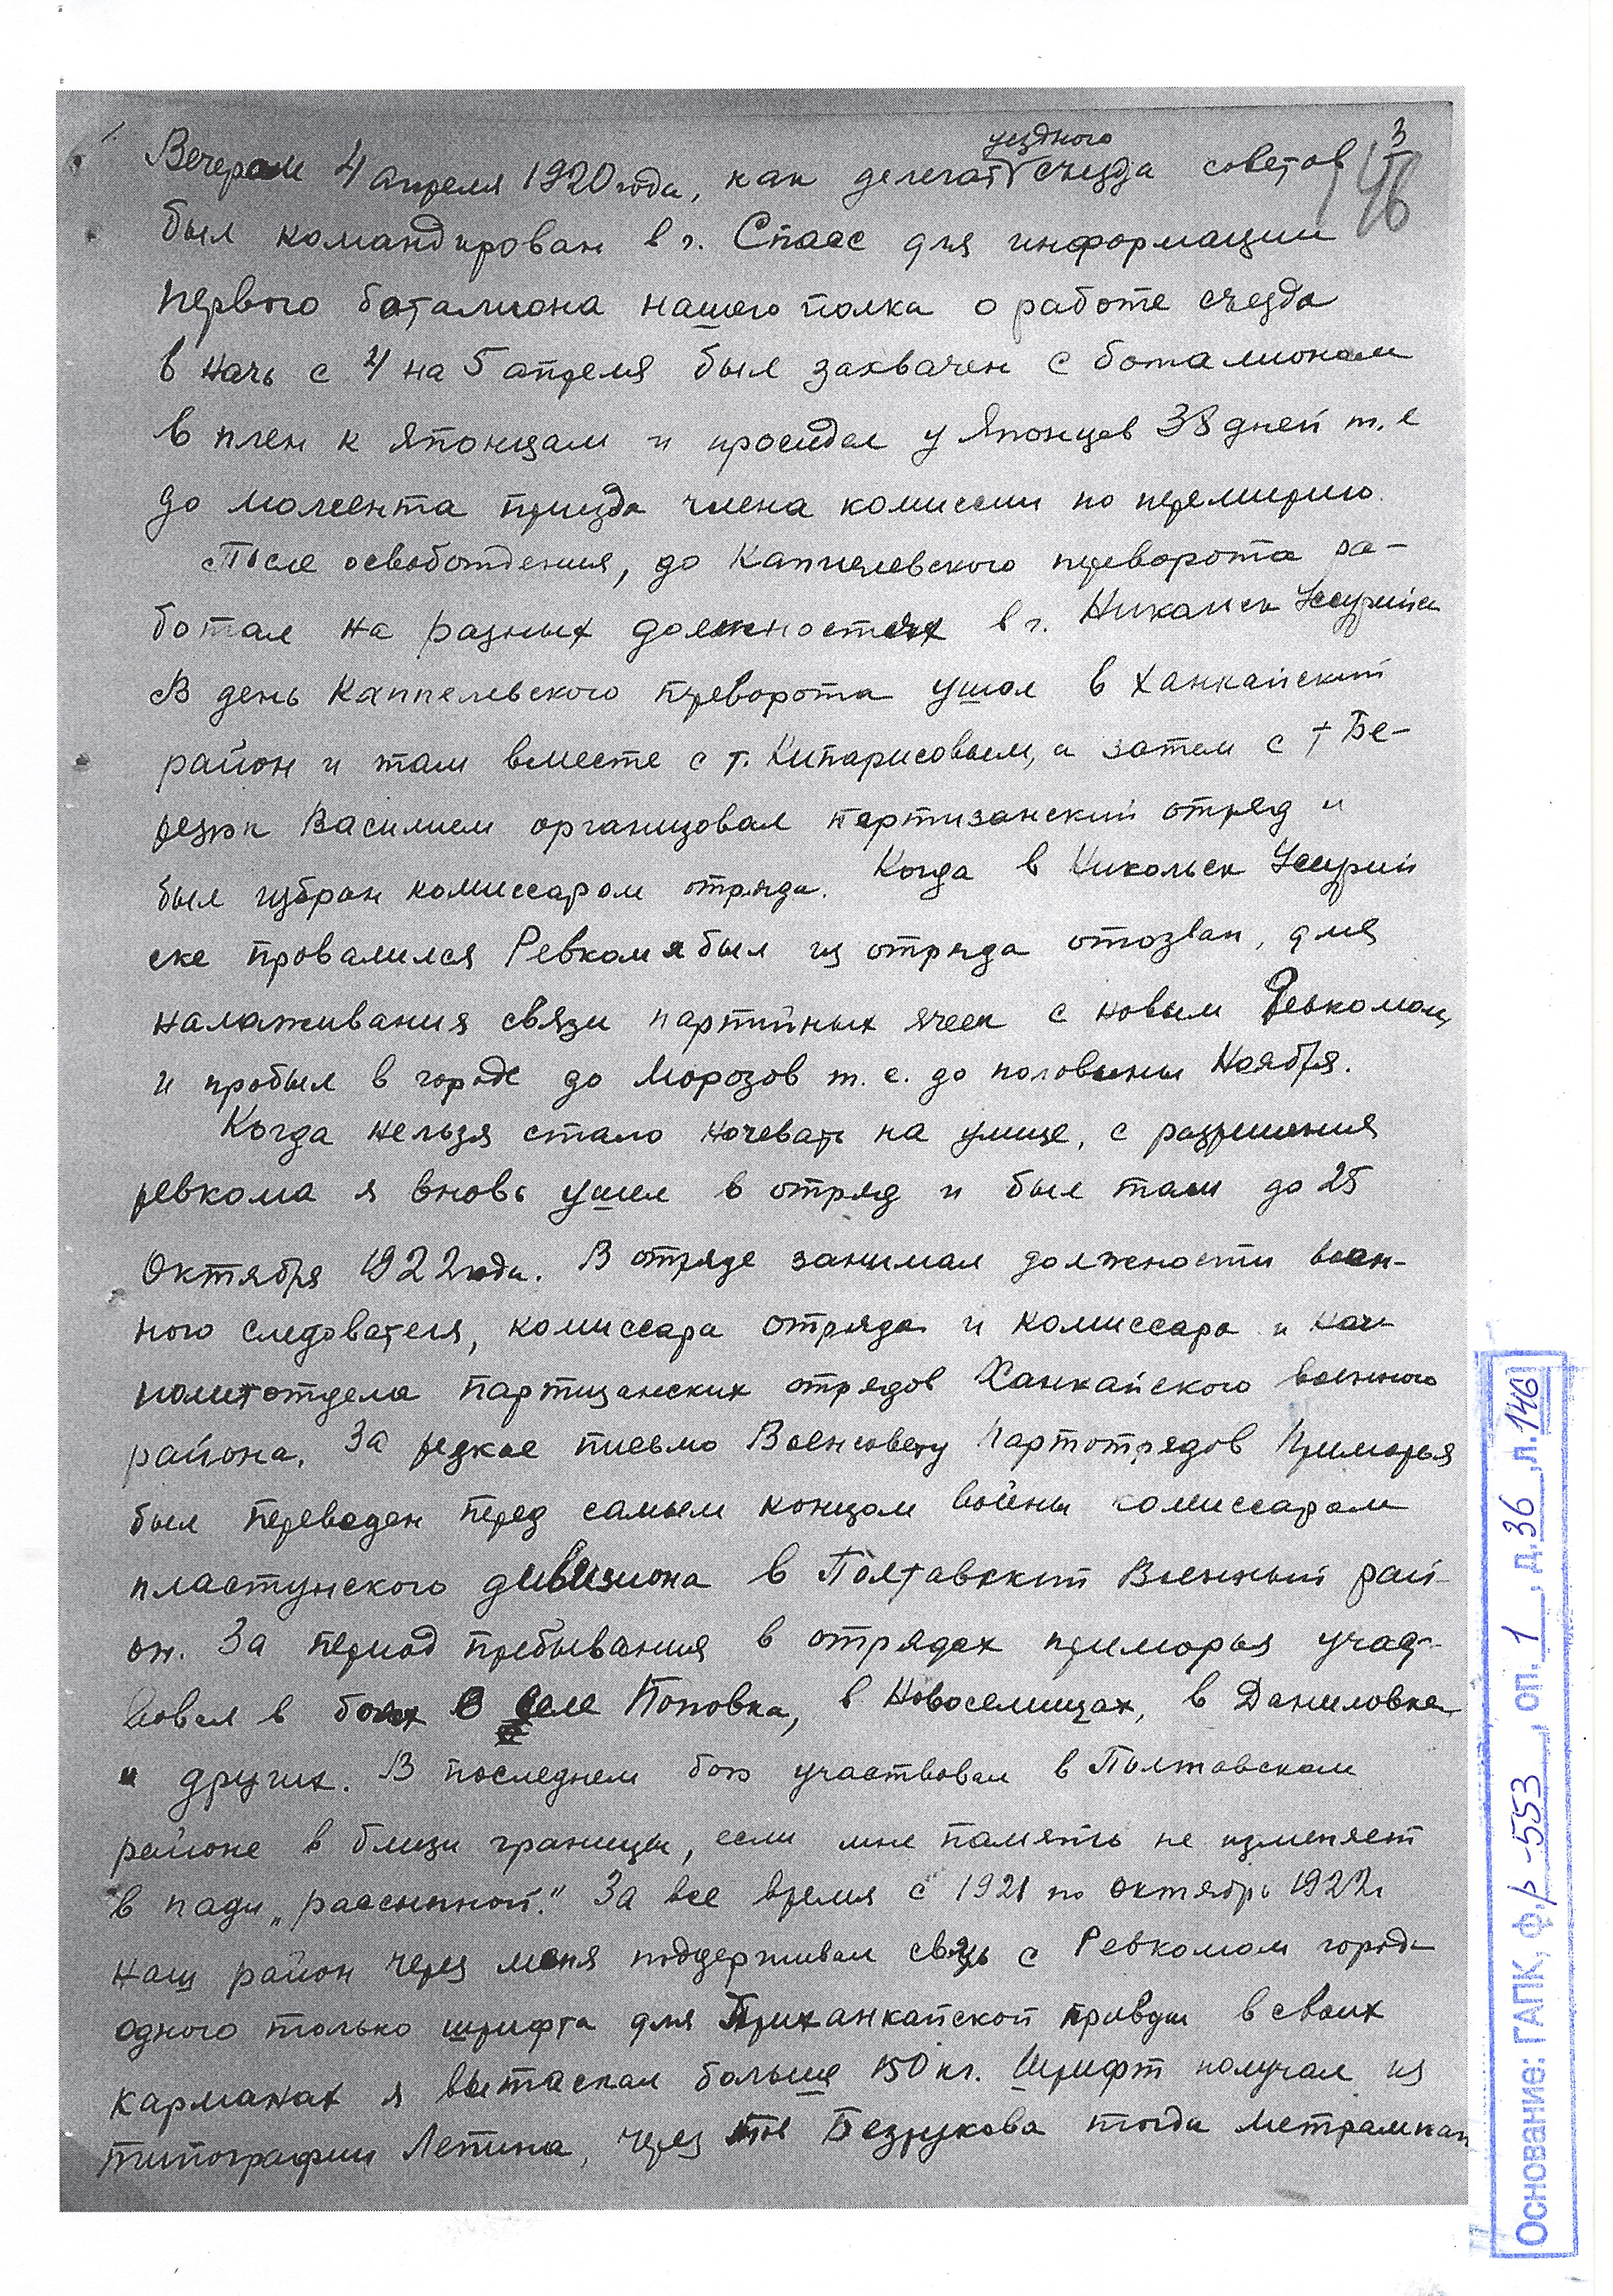 3
146
уездного
Вечером 4 апреля 1920 года, как делегат съезда советов
был командирован в г. Спасс для информации
первого баталиона нашего полка о работе съезда
в ночь с 4 на 5 апреля был захвачен с баталионом
в плен к японцам и просидел у Японцев 38 дней т.е
до момента приезда члена комиссии по перемирию.
После освобождения, до Каппелевского переворота ра-
ботал на разных должностях в г. Никольск Уссурийск
В день Каппелевского переворота ушол в Ханкайский
район и там вместе с т. Кипарисовым, а затем с т Бе-
резюк Василием организовал партизанский отряд и
был избран комиссаром отряда. Когда в Никольск Уссурий
ске провалился Ревком я был из отряда отозван, для
налаживания связи партийных ячеек с новым Ревкомом,
и пробыл в городе до Морозов т.е. до половины Ноября.
Когда нельзя стало ночевать на улице, с разрешения
ревкома я вновь ушел в отряд и был там до 25
Октября 1922 года. В отряде занимал должности воен-
ного следователя, комиссара отряда и комиссара и нач
политотдела партизанских отрядов Ханкайского военного
района. За резкое письмо Военсовету Партотрядов Приморья
был переведен перед самым концом войны комиссаром
пластунского дивизиона в Полтавский Военный рай-
он. За период пребывания в отрядах приморья участ-
вовал в боях В селе Поповка, в Новоселищах, в Даниловке
и других. В последнем бою участвовал в Полтавском
районе в близи границы, если мне память не изменяет
в пади „рассыпной". За все время с 1921 по октябрь 1922г
наш район через меня поддерживал связь с Ревкомом города
одного только шрифта для Приханкайской правды в своих
карманах я вытаскал больше 150 кг. Шрифт получал из
типографии Лепина, через тов Безрукова тогда метранпаж
Основание: ГАПК, ф.р-553, оп. 1, д. 36, л. 146